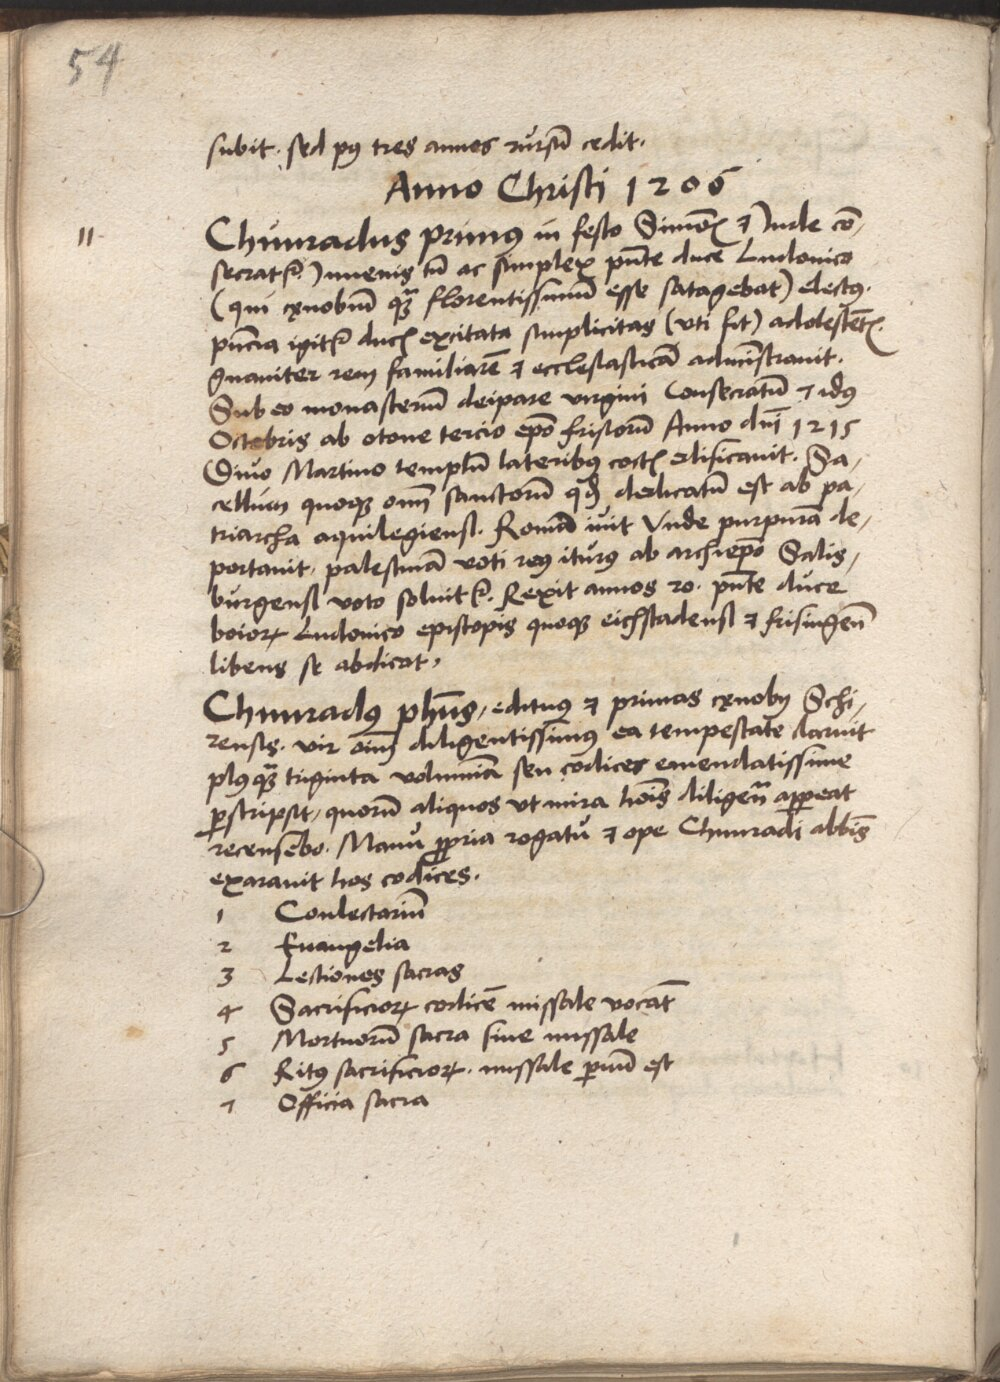 54
subit. sed pꝰ tres annos rursū cedit.
Anno Christi 1206
11
Chunradus primꝰ in festo Simōꝭ ⁊ Jude cō,
secratr̃. Juvenis tn̄ ac simplex pn̄te duce Ludovico
(qui cęnobiū qᷓ florentissimum esse satagebat) electꝰ.
igitr̃ ducꝭ excitata simplicitas (uti fit) adolescētꝭ.
gnaviter rem familiarē ⁊ ecclesiasticā administravit.
Sub eo monasteriū deipare virgini Consecratum 7 idꝰ
Octobris ab otone tercio ep̄o frisiorū Anno dn̄i 1215
Divo Martino templū lateribꝰ coctꝭ edificavit. Sa,
cellum quoqꝫ om̄ sanctorū qđ dedicatū est ab pa,
triarcha aquilegiensi. Romā ivit Unde purpurā de,
portavit. palestinā voti reꝰ iturꝰ ab archiep̄o Salis,
burgensi voto solvitr̃. Rexit annos 20. pn̄te duce
boioꝝ Ludovico episcopis quoqꝫ eichstadensi ⁊ frisingen̄
libens se abdicat,
Chunradꝰ ph̄us, edituus ⁊ primas cęnobij Schi,
rensis. vir oim̄ diligentissimus ea tempestate claruit
plꝰqᷓ triginta volumina seu codices emendatissime
ꝑscripsit, quorū aliquos ut mira hoīs diligen̄a appeat
recensebo. Manu ꝓpria rogatu ⁊ ope Chunradi abb̄is
exaravit hos codices.
1 Conlectariū
2 Euangelia
3 Lectiones sacras
4 Sacrificioꝝ codicē missale vocāt
5 Mortuorū sacra sive missale
6 Ritꝰ sacrificioꝝ. missale ꝑvum est
7 Officia sacra